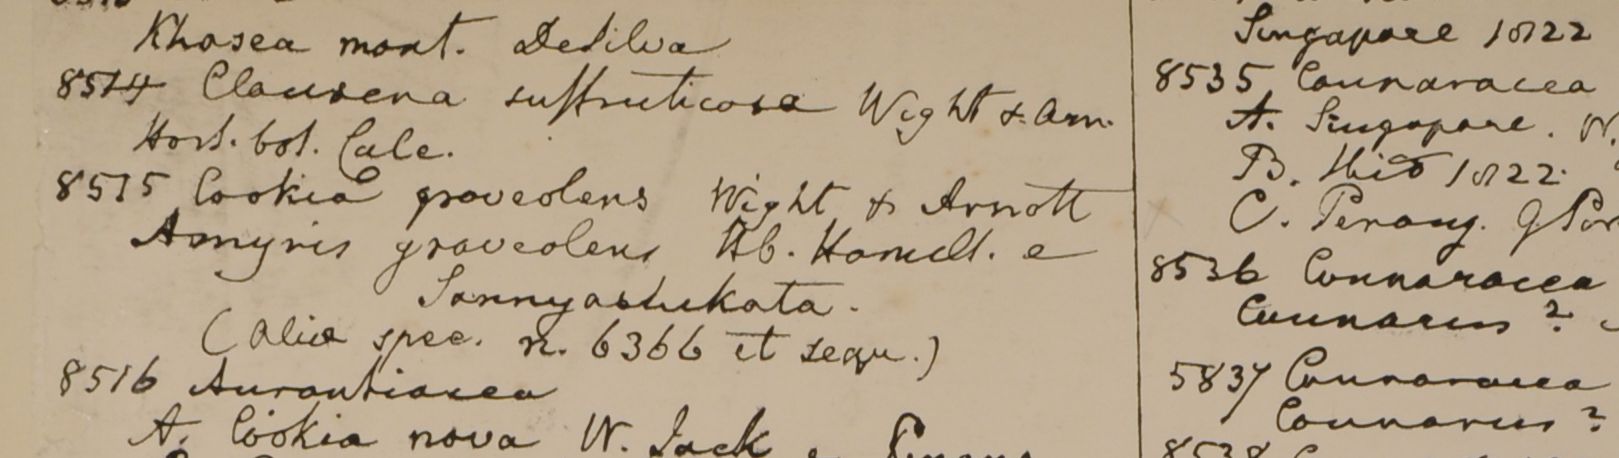 Khasea mont. Desilva
8514 Clausena suffruticosa Wight & Arn.
Hort. bot. Calc.
8515 Cookia graveolens Wight & Arnott
Amyris graveolens Hb. Hamilt. e
Sannyashikata.
(Alia spec. n. 6366 et sequ.)
8516 Aurantiacea
A. Cookia nova W. Jack
Singapore 1822
8535 Connaracea
A. Singapore.
B. 1822.
C. Penang.
8536 Connaracea
Connarus ?
5837 Connaracea
Connarus ?
8538